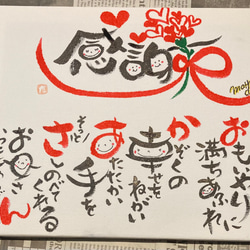 感謝
may
おもいやりに
満ちあふれ
かぞくの
幸せをねがい
あたたかい
手を
そっと
さしのべて
くれる
お母さん